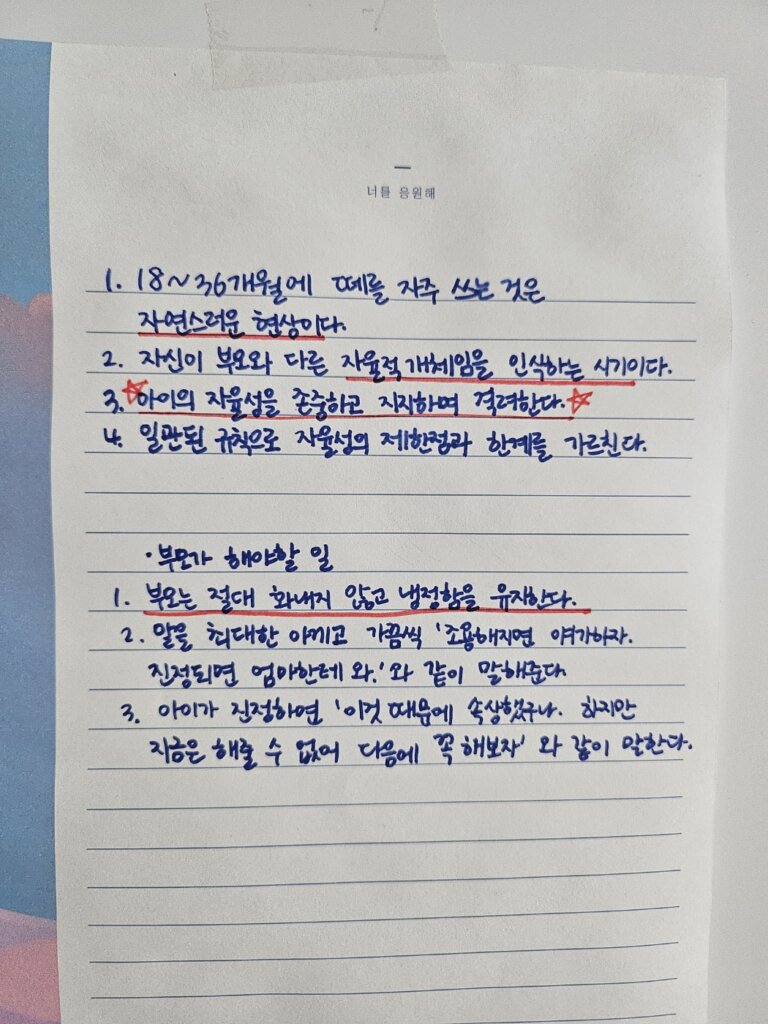 너를 응원해
1. 18~36개월에 떼를 자주 쓰는 것은
자연스러운 현상이다.
2. 자신이 부모와 다른 자율적 개체임을 인식하는 시기이다.
3. 아이의 자율성을 존중하고 지지하며 격려한다.
4. 일관된 규칙으로 자율성의 제한점과 한계를 가르친다.
·부모가 해야할 일
1. 부모는 절대 화내지 않고 냉정함을 유지한다.
2. 말을 최대한 아끼고 가끔씩 '조용해지면 얘기하자.
진정되면 엄마한테 와.'와 같이 말해준다.
3. 아이가 진정하면 '이것 때문에 속상했구나. 하지만
지금은 해줄 수 없어 다음에 꼭 해보자' 와 같이 말한다.